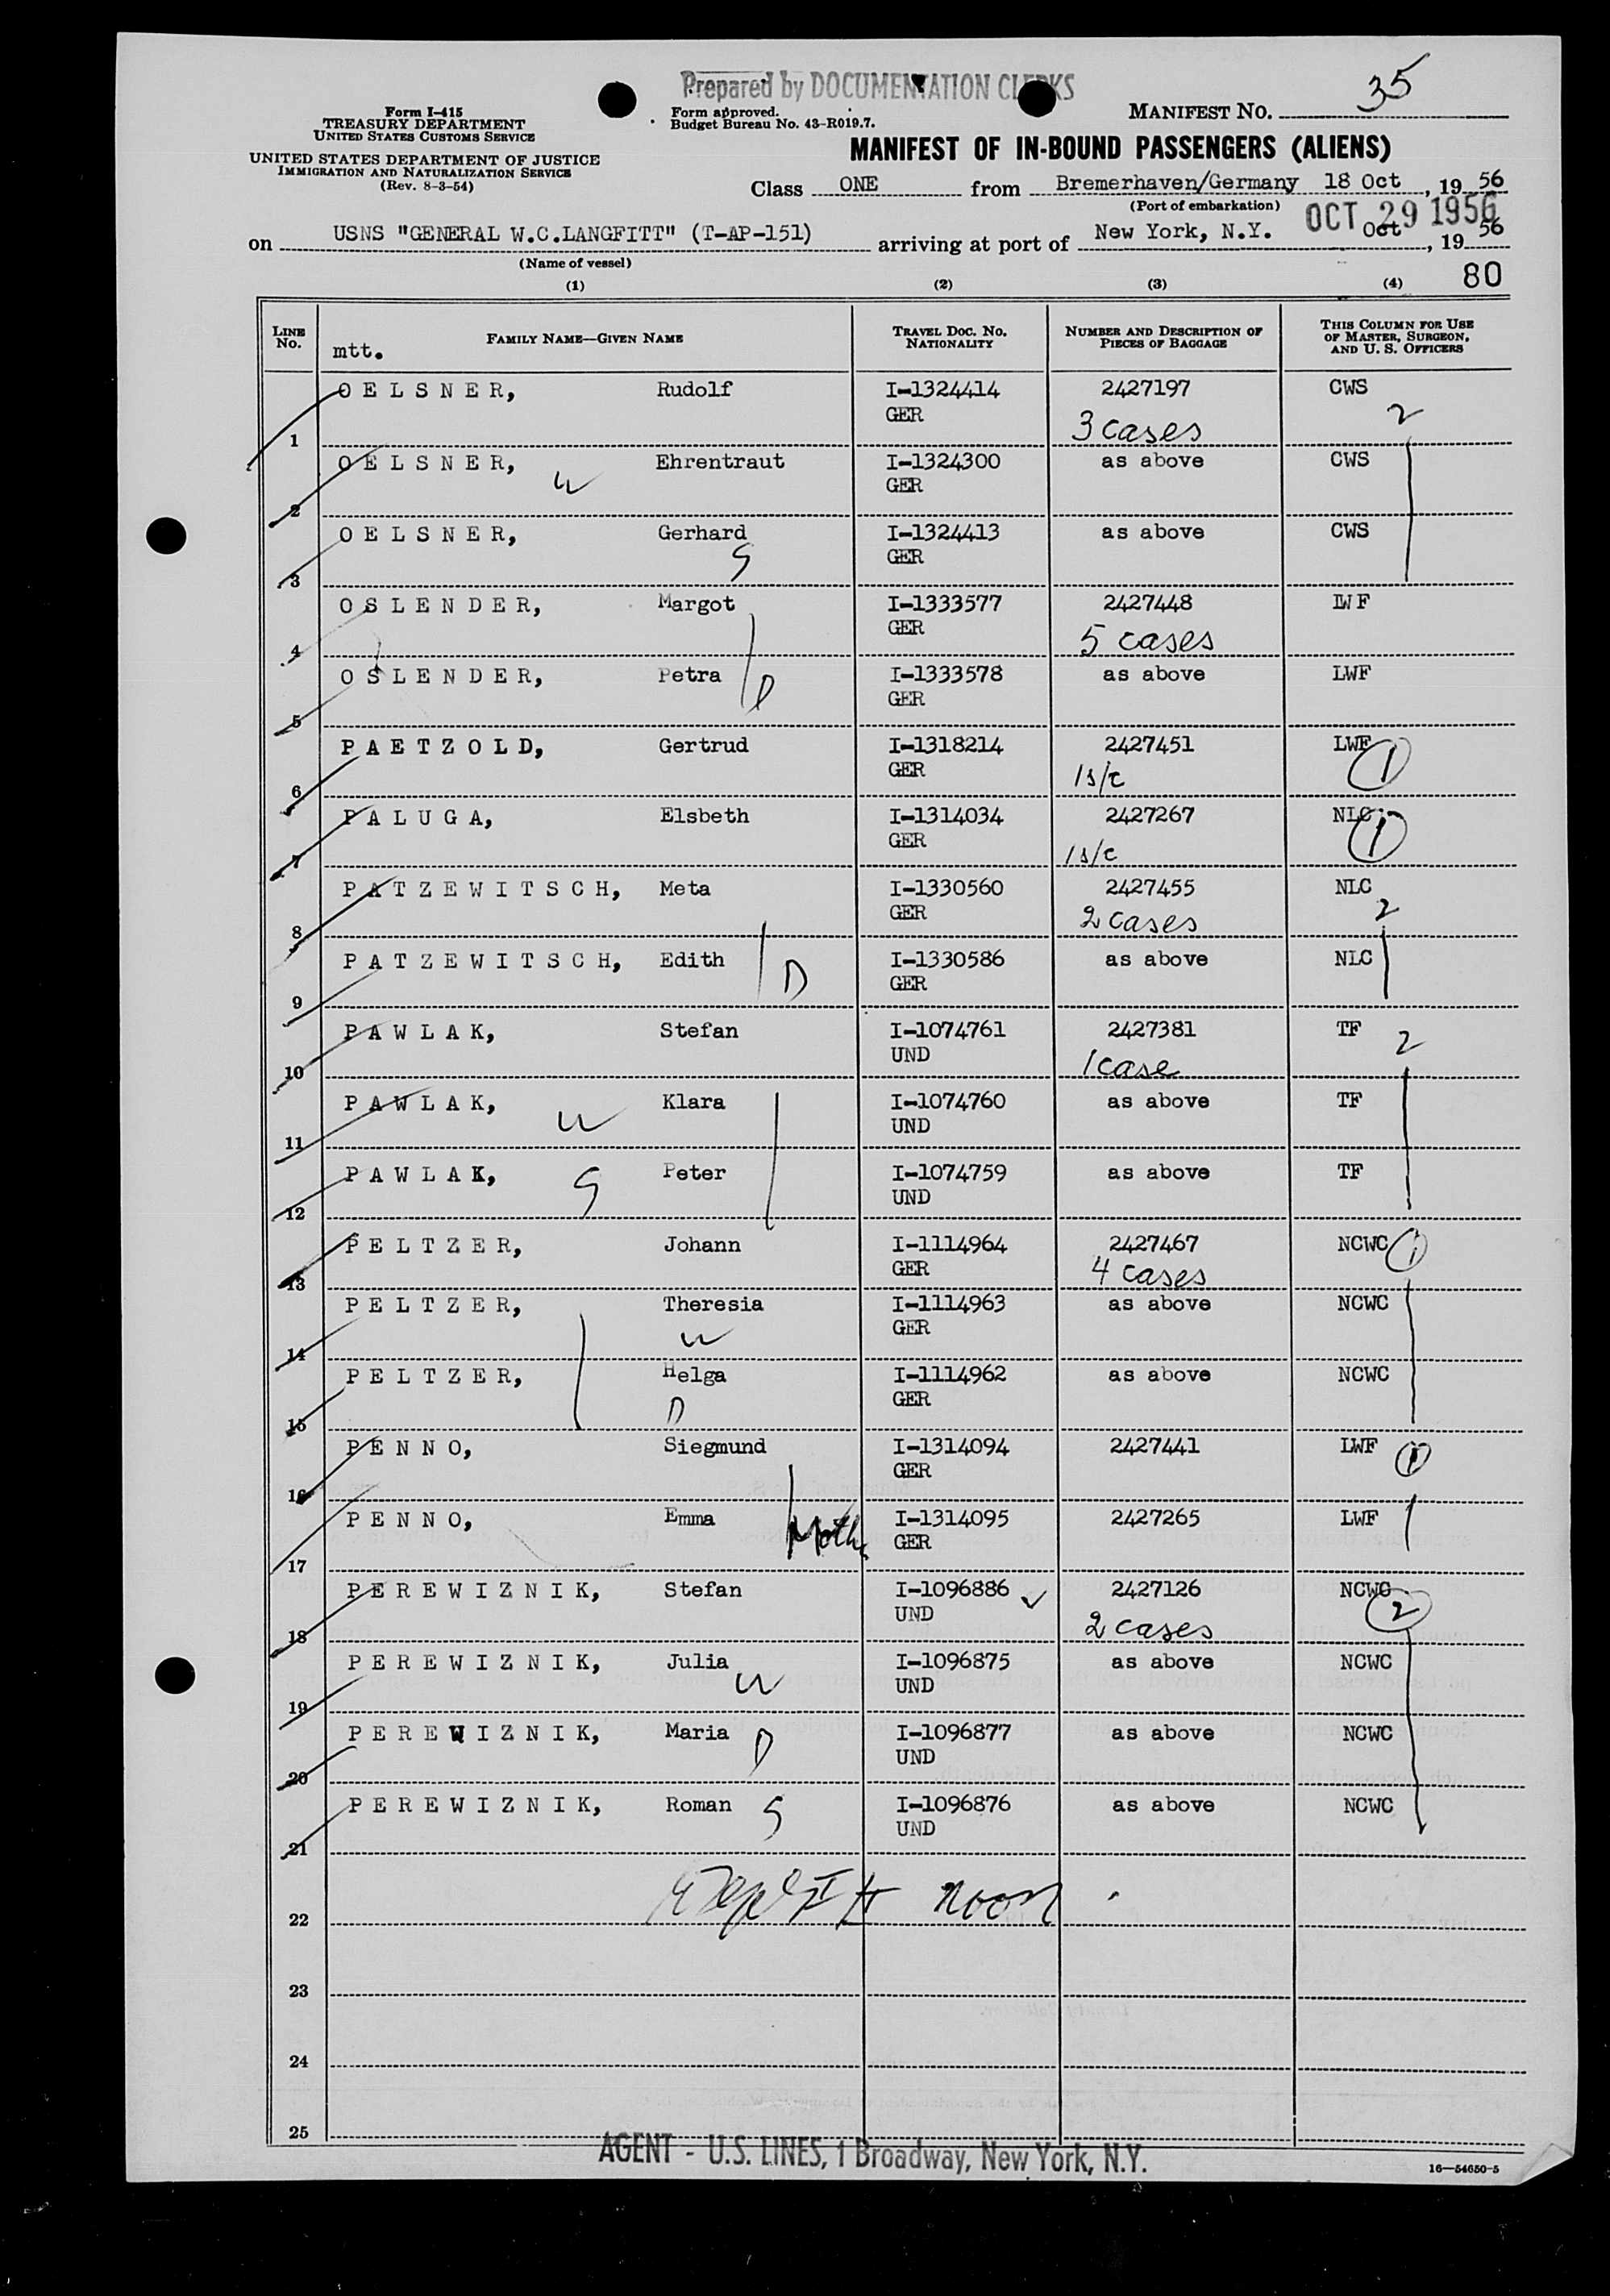 Prepared by DOCUMENTATION CLERKS
Form I-415
TREASURY DEPARTMENT
UNITED STATES CUSTOMS SERVICE
UNITED STATES DEPARTMENT OF JUSTICE
IMMIGRATION AND NATURALIZATION SERVICE
(Rev. 8-3-54)
Form approved.
Budget Bureau No. 43-R019.7.
MANIFEST NO. 35
MANIFEST OF IN-BOUND PASSENGERS (ALIENS)
Class ONE from Bremerhaven/Germany 18 Oct, 1956
(Port of embarkation)
OCT 29 1956
on USNS "GENERAL W.C.LANGFITT" (T-AP-151) arriving at port of New York, N.Y. Oct, 1956
(Name of vessel)
(1) (2) (3) (4) 80
LINE No. mtt. FAMILY NAME—GIVEN NAME TRAVEL DOC. NO. NATIONALITY NUMBER AND DESCRIPTION OF PIECES OF BAGGAGE THIS COLUMN FOR USE OF MASTER, SURGEON, AND U. S. OFFICERS
1 OELSNER, Rudolf I-1324414 GER 2427197 3 cases CWS 2
2 OELSNER, W Ehrentraut I-1324300 GER as above CWS
3 OELSNER, Gerhard S I-1324413 GER as above CWS
4 OSLENDER, Margot I-1333577 GER 2427448 5 cases LWF
5 OSLENDER, Petra D I-1333578 GER as above LWF
6 PAETZOLD, Gertrud I-1318214 GER 2427451 1 s/c LWF 1
7 PALUGA, Elsbeth I-1314034 GER 2427267 1 s/c NLC 1
8 PATZEWITSCH, Meta I-1330560 GER 2427455 2 cases NLC 2
9 PATZEWITSCH, Edith D I-1330586 GER as above NLC
10 PAWLAK, Stefan I-1074761 UND 2427381 1 case TF 2
11 PAWLAK, W Klara I-1074760 UND as above TF
12 PAWLAK, S Peter I-1074759 UND as above TF
13 PELTZER, Johann I-1114964 GER 2427467 4 cases NCWC 1
14 PELTZER, Theresia W I-1114963 GER as above NCWC
15 PELTZER, Helga D I-1114962 GER as above NCWC
16 PENNO, Siegmund I-1314094 GER 2427441 LWF 1
17 PENNO, Emma Moth I-1314095 GER 2427265 LWF
18 PEREWIZNIK, Stefan I-1096886 UND 2427126 2 cases NCWC 2
19 PEREWIZNIK, Julia W I-1096875 UND as above NCWC
20 PEREWIZNIK, Maria D I-1096877 UND as above NCWC
21 PEREWIZNIK, Roman S I-1096876 UND as above NCWC
22 noon
23
24
25
AGENT - U.S. LINES, 1 Broadway, New York, N.Y.
16—54650-5